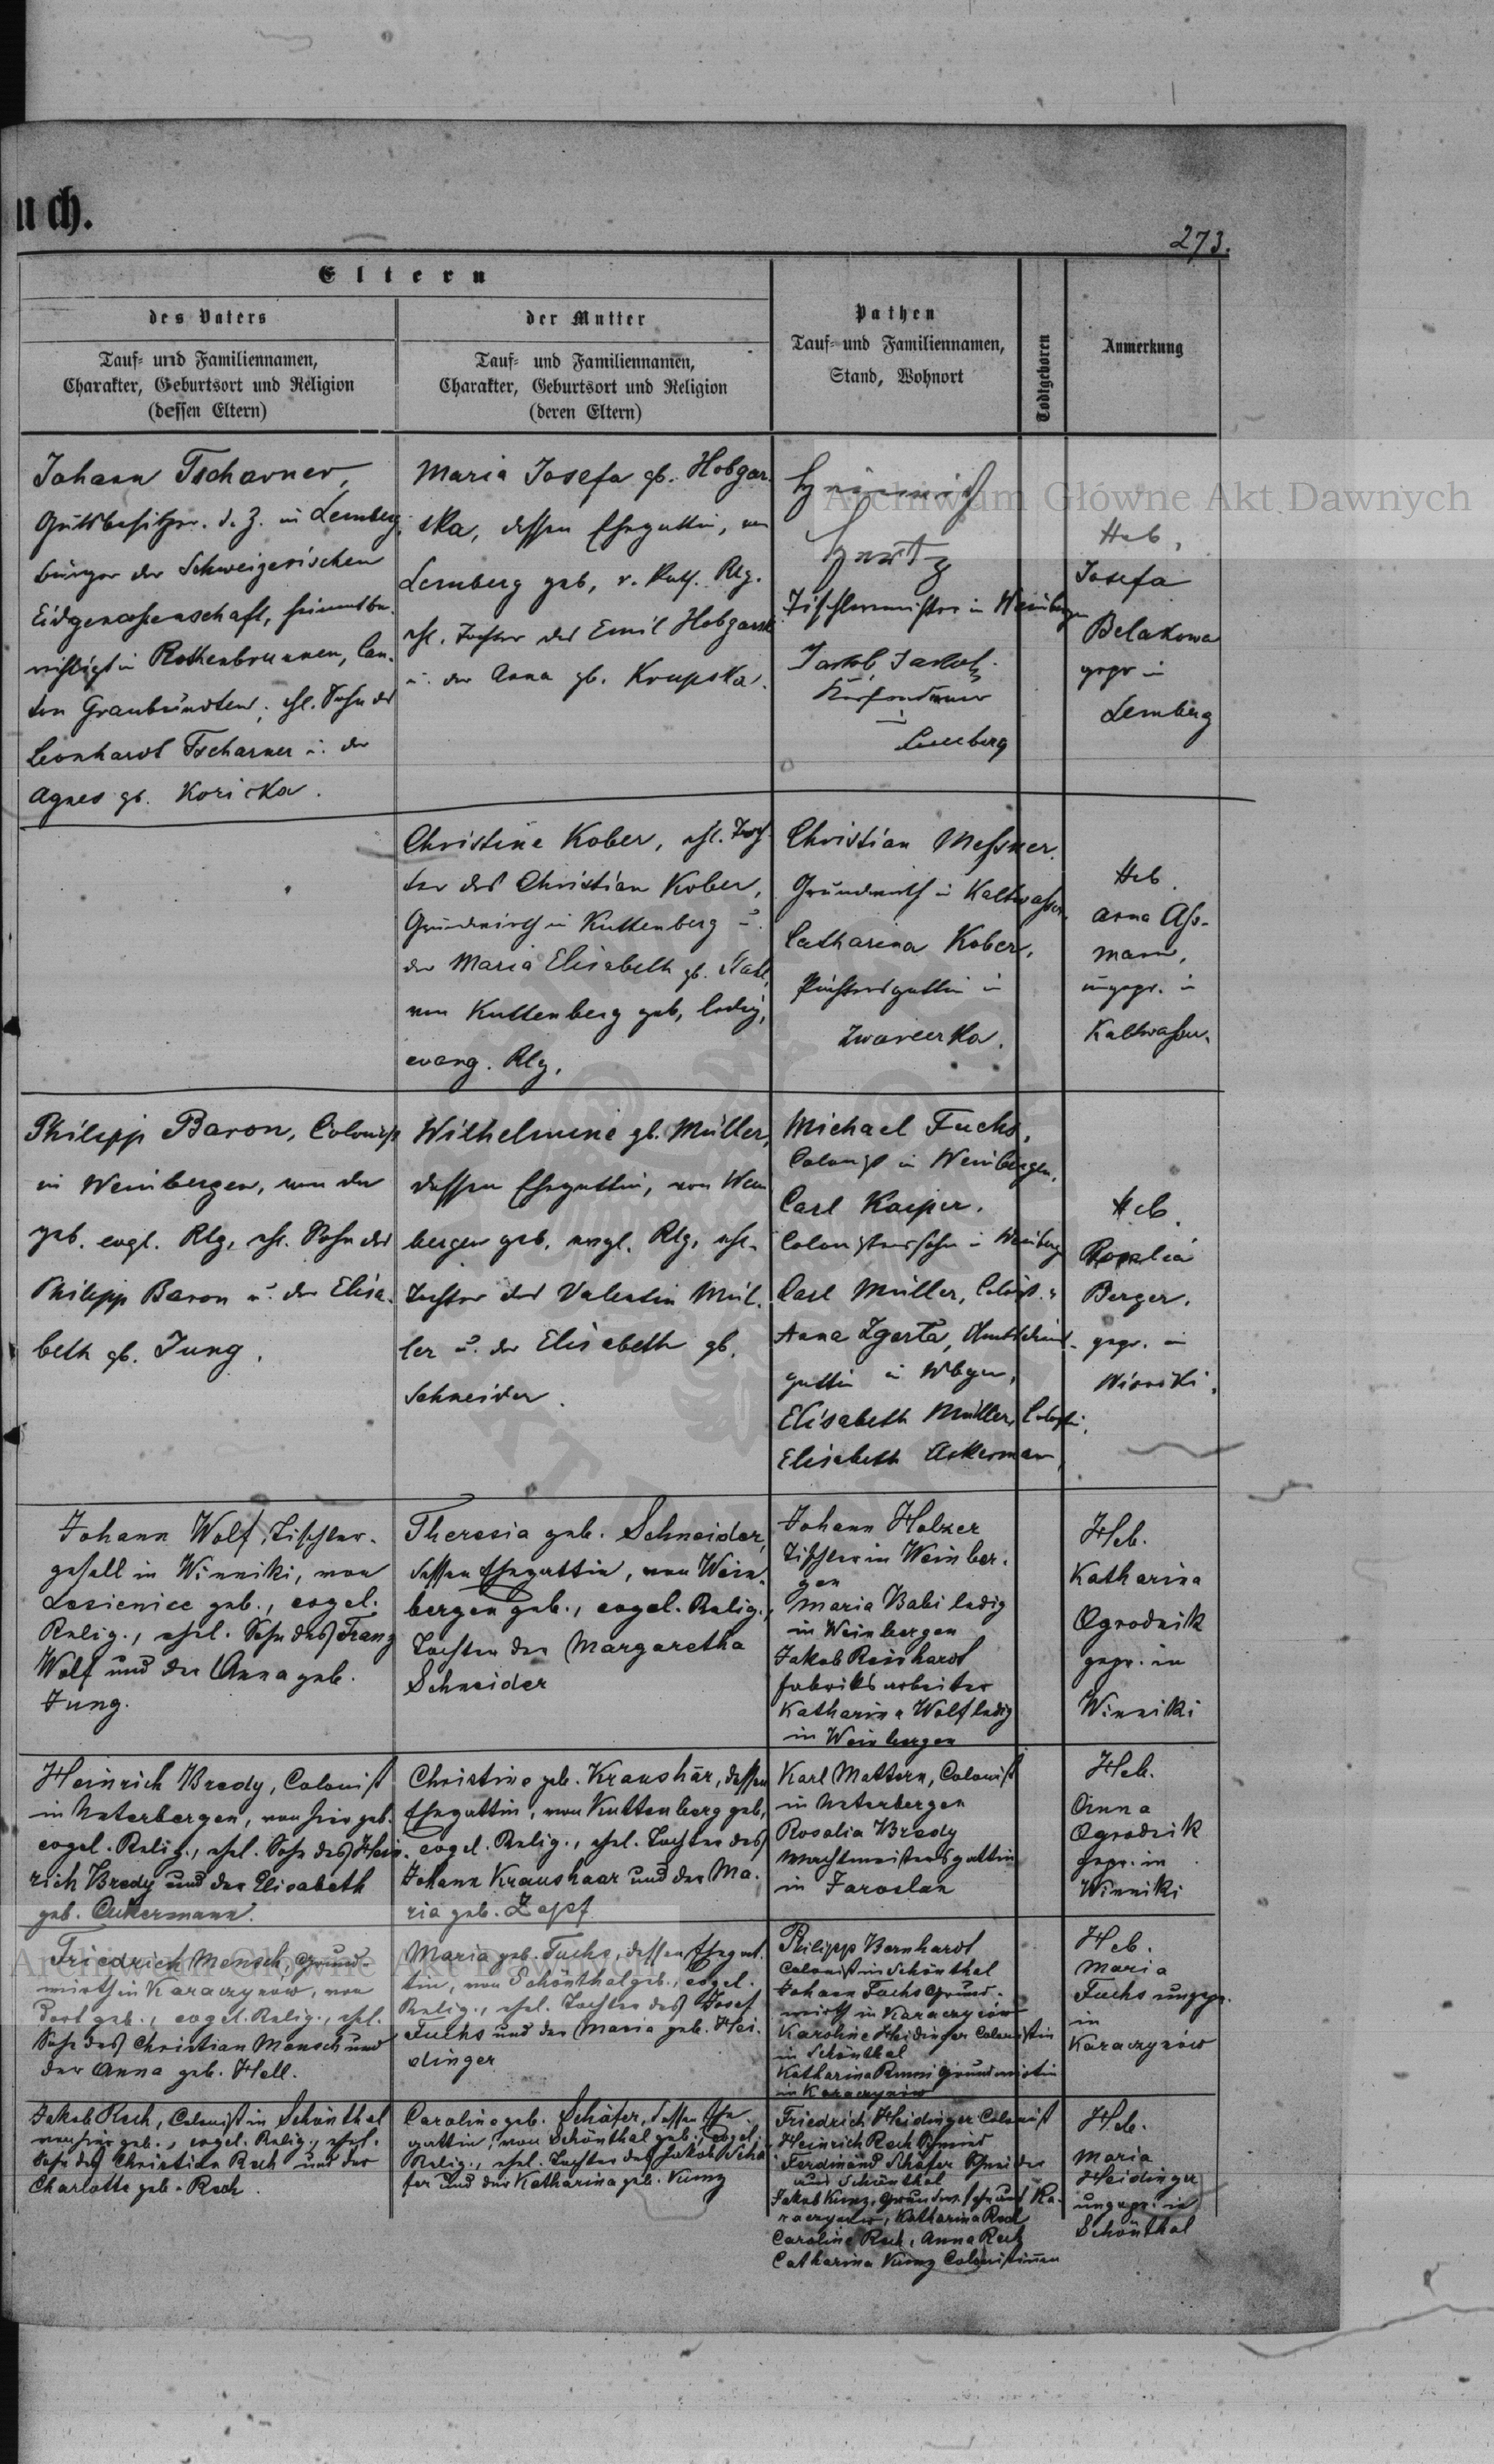 uch.
273.
Eltern
des Vaters
Tauf- und Familiennamen,
Charakter, Geburtsort und Religion
(dessen Eltern)
der Mutter
Tauf- und Familiennamen,
Charakter, Geburtsort und Religion
(deren Eltern)
Pathen
Tauf- und Familiennamen,
Stand, Wohnort
Todtgeboren
Anmerkung
Johann Tscharner,
Gutsbesitzer d. Z. in Lemberg,
Bürger der Schweizerischen
Eidgenossenschaft, heimatbe-
rechtigt in Rothenbrunnen, Can-
ton Graubündten, ehl. Sohn des
Leonhardt Tscharner u. der
Agnes gb. Koricka.
Maria Josefa gb. Hobgar-
ska, dessen Ehegattin, von
Lemberg geb, r. kath. Rlg.
ehl. Tochter des Emil Hobgarski
u. der Anna gb. Krupska.
Heinrich
Tischlermeister in Weinbergen
Jakob
Lemberg
Heb,
Josefa
Belakowa
gepr in
Lemberg
Christine Kober, ehl. Toch-
ter des Christian Kober,
Grundwirth in Kuttenberg u.
der Maria Elisabeth gb.
von Kuttenberg geb, ledig,
evang. Rlg.
Christian Messner.
Grundwirth in Kaltwasser.
Catharina Kober,
Pächtersgattin in
Heb.
Anna Ass-
mann,
ungepr. in
Kaltwasser.
Philipp Baron, Colonist
in Weinbergen, von da
geb. evgl. Rlg, ehl. Sohn des
Philipp Baron u. der Elisa-
beth gb. Jung.
Wilhelmine gb. Müller,
dessen Ehegattin, von Wein
bergen geb, evgl. Rlg, ehl.
Tochter des Valentin Mül-
ler u. der Elisabeth gb.
Schneider.
Michael Fuchs,
Colonist in Weinbergen,
Carl Kasper,
Colonistenssohn in Weinberg
Carl Müller, Colonist
Anna Zgerta,
gattin in Wbgen,
Elisabeth Müller, Colonistin,
Elisabeth Ackerman
Heb.
Rosalia
Berger,
gepr. in
Winniki.
Johann Wolf, Tischler-
gesell in Winniki, von
Lesienice geb., evgel.
Relig., ehel. Sohn des Franz
Wolf und der Anna geb.
Jung.
Theresia geb. Schneider,
dessen Ehegattin, von Wein-
bergen geb., evgel. Relig.,
Tochter der Margaretha
Schneider
Johann Holzer
Tischler in Weinber-
gen
Maria Babi ledig
in Weinbergen
Jakob Reinhardt
Fabriksarbeiter
Katharina Wolf ledig
in Weinbergen
Heb.
Katharina
Ogrodnik
gepr. in
Winniki
Heinrich Bredy, Colonist
in Unterbergen, von hier geb.
evgel. Relig., ehel. Sohn des Hein-
rich Bredy und der Elisabeth
geb. Ackermann.
Christine geb. Kraushär, dessen
Ehegattin, von Kuttenberg geb,
evgel. Relig., ehel. Tochter des
Johann Kraushaar und der Ma-
ria geb. Zapf
Karl Mattern, Colonist
in Unterbergen
Rosalia Bredy
Wachtmeistersgattin
in Jaroslau
Heb.
Anna
Ogrodnik
gepr. in
Winniki
Friedrich Mensch, Grund-
wirth in Karaczynów, von
dort geb., evgel. Relig., ehel.
Sohn des Christian Mensch und
der Anna geb. Hell.
Maria geb. Fuchs, dessen Ehegat-
tin, von Schönthal geb., evgel.
Relig., ehel. Tochter des Josef
Fuchs und der Maria geb. Hei-
dinger
Philipp Bernhardt
Colonist in Schönthal
Johann Fuchs Grund-
wirth in Karaczynów
Karoline Heidinger Colonistin
in Schönthal
Katharina Grundwirtin
in Karaczynów
Heb.
Maria
Fuchs ungepr.
in
Karaczynów
Jakob Rech, Colonist in Schönthal
von hier geb., evgel. Relig., ehel.
Sohn des Christian Rech und der
Charlotte geb. Rech.
Caroline geb. Schäfer, dessen Ehe
gattin, von Schönthal geb., evgel.
Relig., ehel. Tochter des Jakob Schä
fer und der Katharina geb. Kunz
Friedrich Heidinger Colonist
Heinrich Rech Schmied
Ferdinand Schäfer Schneider
aus Schönthal
Jakob Kunz, Grundw. Sohn aus Ka-
raczynów, Katharina Rech
Caroline Rech, Anna Rech
Catharina Kunz Colonistinnen
Heb.
Maria
Heidinger
ungepr. in
Schönthal
Archiwum Główne Akt Dawnych
Archiwum Główne Akt Dawnych